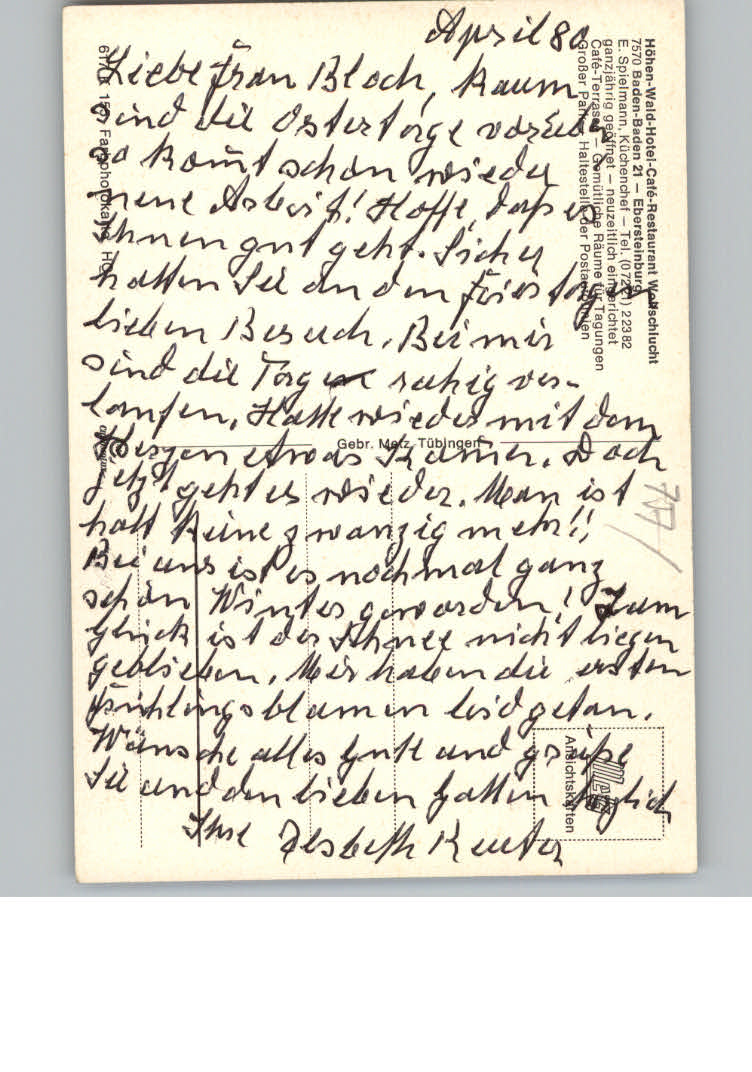 April 80
Liebe Frau Bloch, kaum
sind die Ostertage vorüber
so kom̄t schon wieder
neue Arbeit! Hoffe, daß es
Ihnen gut geht. Sicher
hatten Sie an den Feiertagen
lieben Besuch. Bei mir
sind die Tage ruhig ver-
laufen. Hatte wieder mit dem
Herzen etwas Kum̄er. Doch
jetzt geht es wieder. Man ist
halt keine zwanzig mehr!!
Bei uns ist es nochmal ganz
schön Winter geworden! Zum
Glück ist der Schnee nicht liegen
geblieben. Mir haben die ersten
Frühlingsblumen leid getan.
Wünsche alles Gute und grüße
Sie und den lieben Gatten herzlich
Ihre
Höhen-Wald-Hotel-Café-Restaurant Wolfschlucht
7570 Baden-Baden 21 — Ebersteinburg
E. Spielmann, Küchenchef — Tel. (0 72 21) 2 23 82
ganzjährig geöffnet — neuzeitlich eingerichtet
Café-Terrasse — Gemütliche Räume für Tagungen
Großer Parkpl. Haltestelle der Postautolinien
Gebr. Metz, Tübingen
Farbphotokarte
METZ
Ansichtskarten